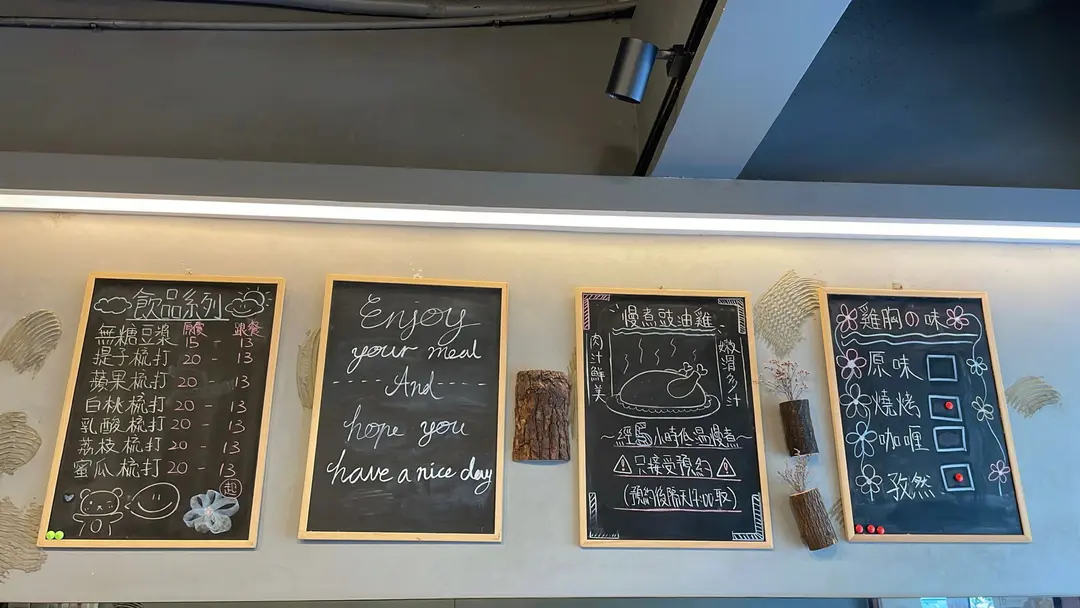 飲品系列
原價 跟餐
無糖豆漿 15 - 13
提子梳打 20 - 13
蘋果梳打 20 - 13
白桃梳打 20 - 13
乳酸梳打 20 - 13
荔枝梳打 20 - 13
蜜瓜梳打 20 - 13
起
Enjoy
your meal
And
hope you
have a nice day
慢煮豉油雞
肉汁鮮美
嫩滑多汁
~經 小時低溫慢煮~
只接受預約
(預約後隔天17:00取)
雞胸の味
原味
燒烤
咖喱
孜然